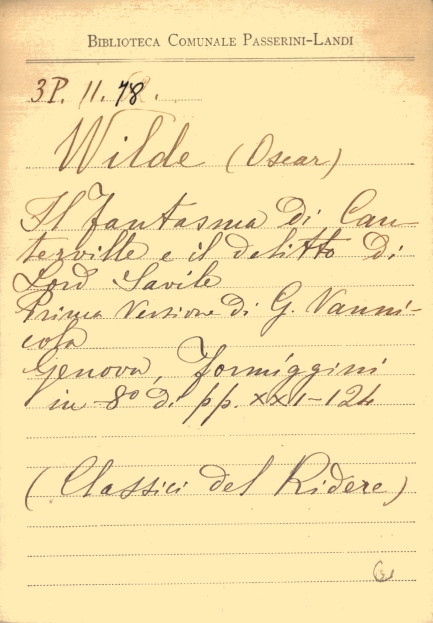 BIBLIOTECA COMUNALE PASSERINI-LANDI
3P. 11. 78.
Wilde (Oscar)
Il fantasma di Can-
terville e il delitto di
Lord Savile
Prima Versione di G. Vanni-
cola
Genova, Formiggini
in -8º di pp. XXI-124
(Classici del Ridere)